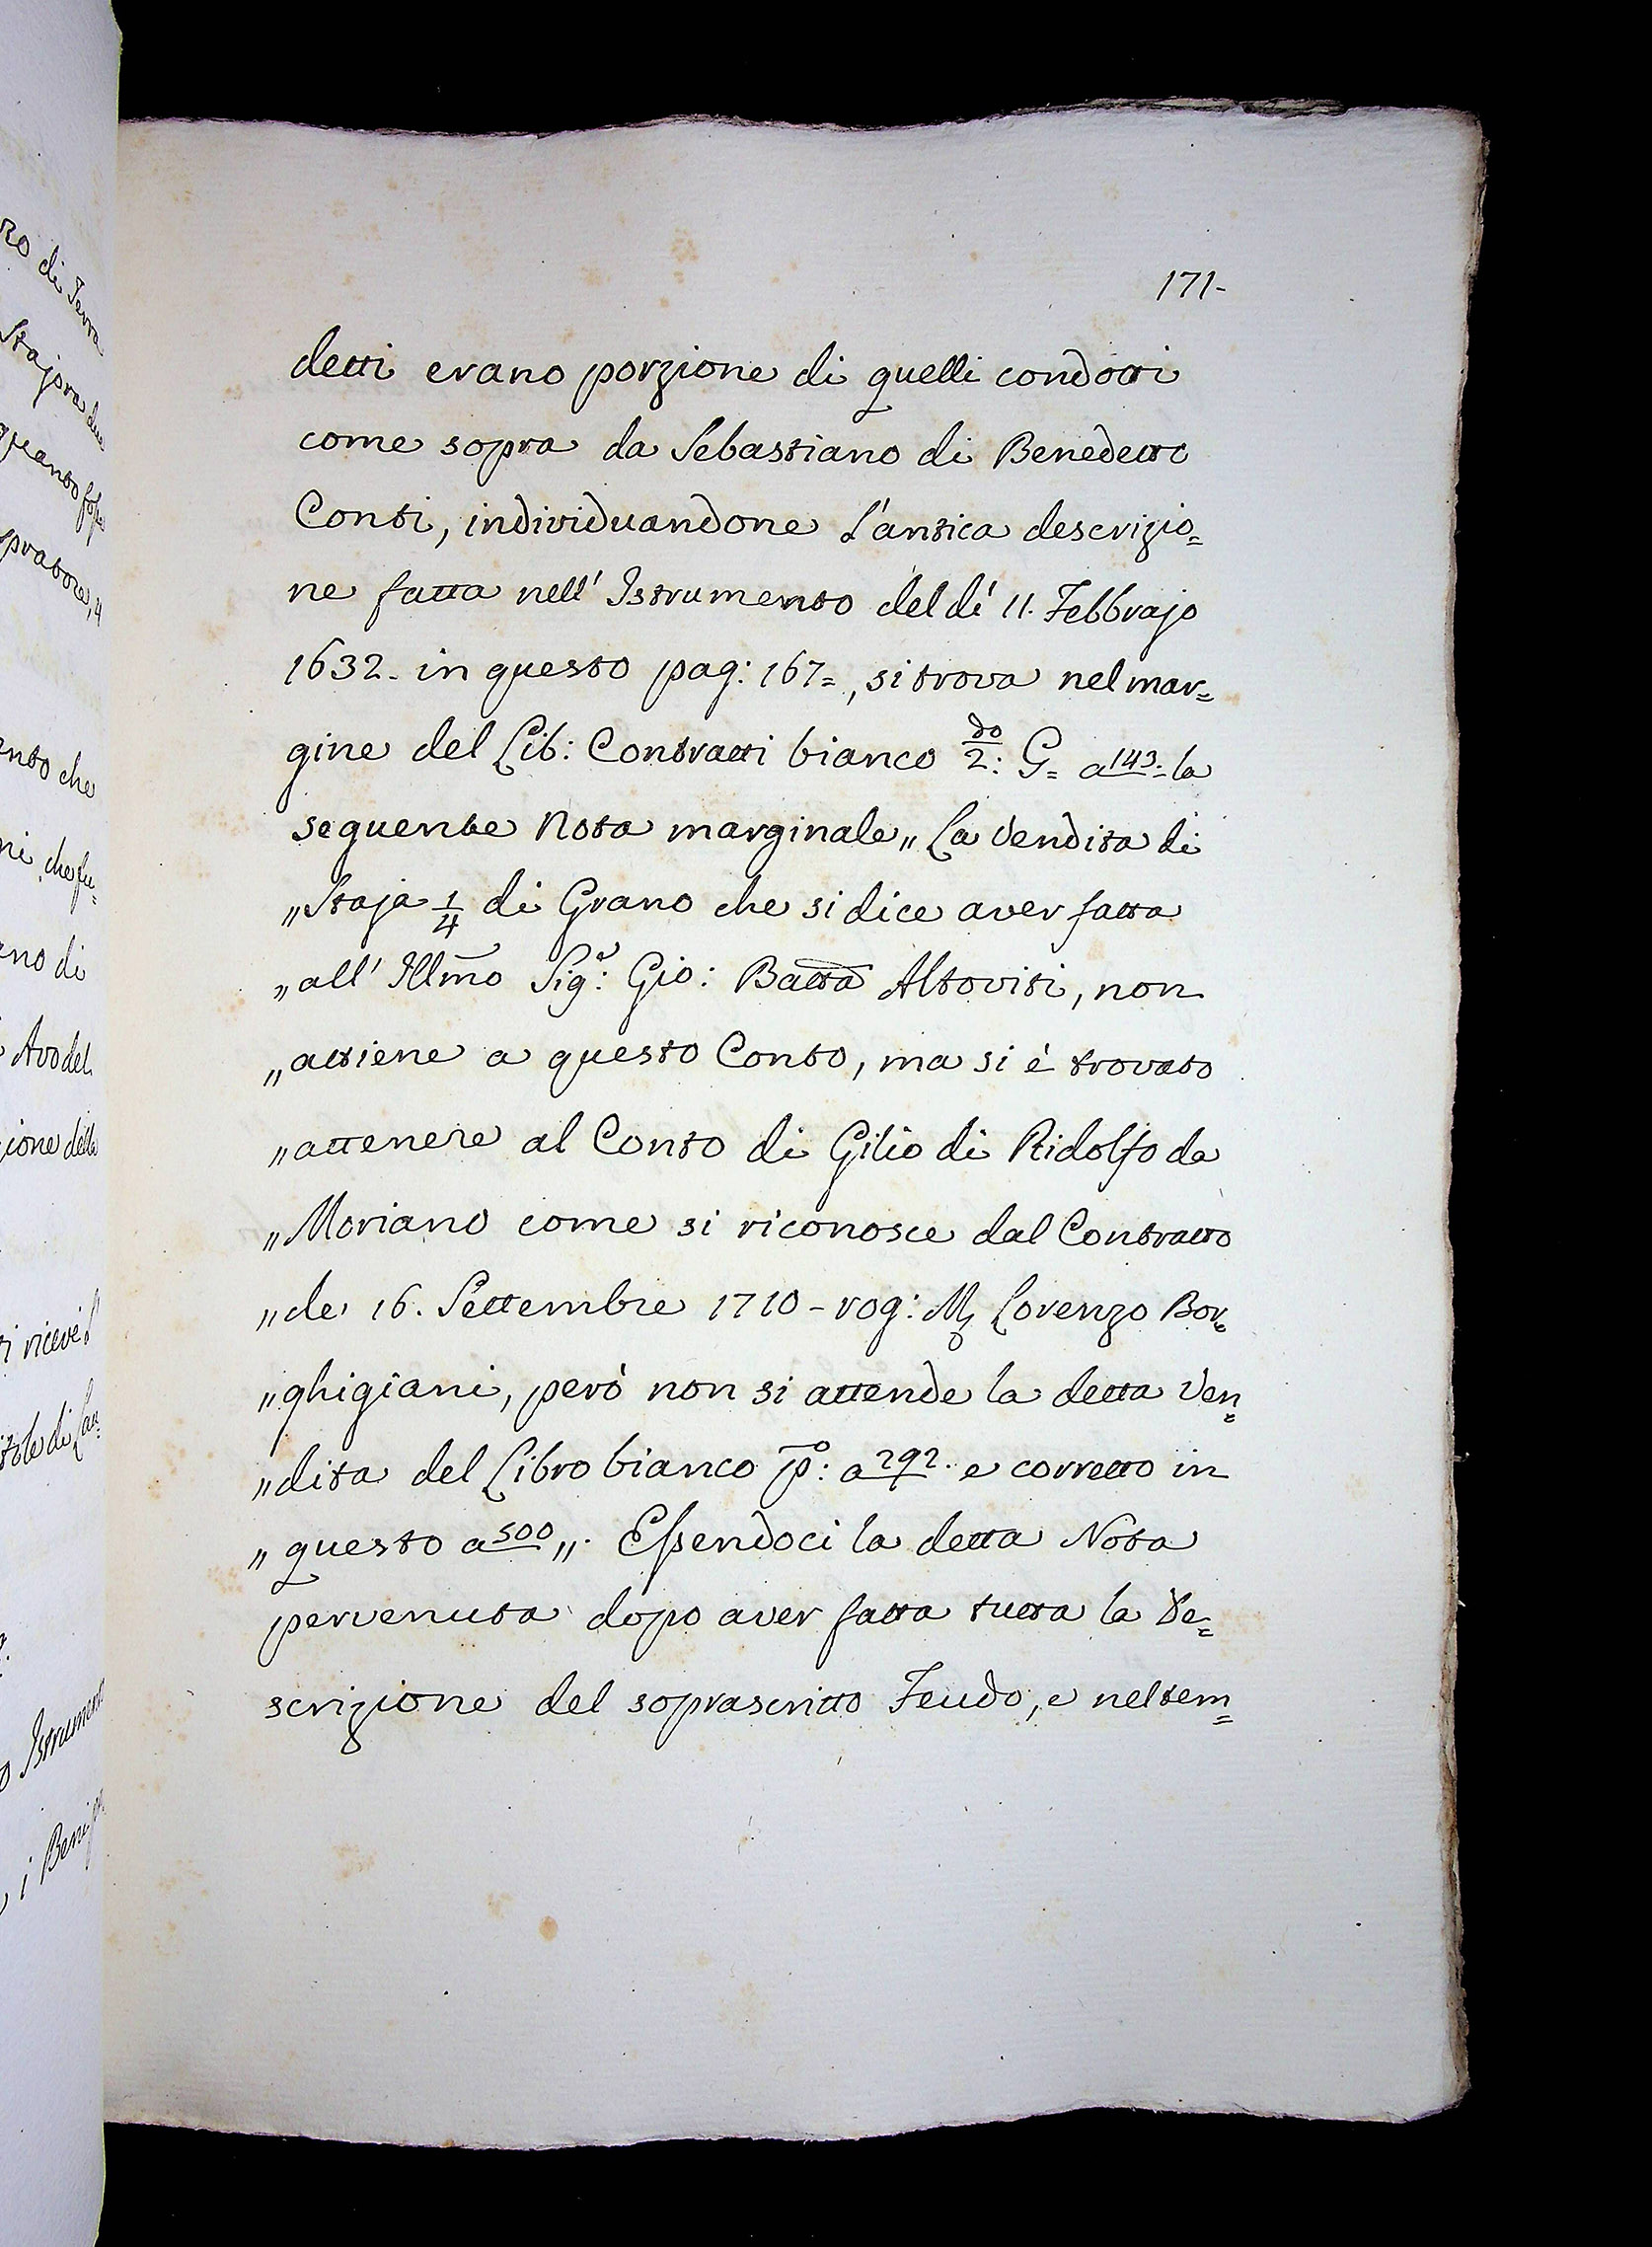 171-
detti erano porzione di quelli condotti
come sopra da Sebastiano di Benedetto
Conti, individuandone l'antica descrizio=
ne fatta nell' Istrumento del dì 11. Febbrajo
1632. in questo pag: 167=, si trova nel mar=
gine del Lib: Contratti bianco 2:do G= a 143. la
seguente Nota marginale „ La Vendita di
„ Staja 1/4 di Grano che si dice aver fatta
„ all' Illmo Sig:r Gio: Batta Altoviti, non
„ attiene a questo Conto, ma si è trovato
„ attenere al Conto di Gilio di Ridolfo da
„ Moriano come si riconosce dal Contratto
„ de' 16. Settembre 1710 - rog: Lorenzo Bor=
„ ghigiani, però non si attende la detta Ven=
„ dita del Libro bianco p:o a 292. e corretto in
„ questo a 500 „. Essendoci la detta Nota
pervenuta dopo aver fatta tutta la De=
scrizione del soprascritto Feudo, e nel tem=
ro di Terra
Stajora due
quanto
pratore, 4
ento che
ni, che fu=
ano di
Avo del
ione della
ti riceve
tole di Lau=
o Istrumen
i Beni